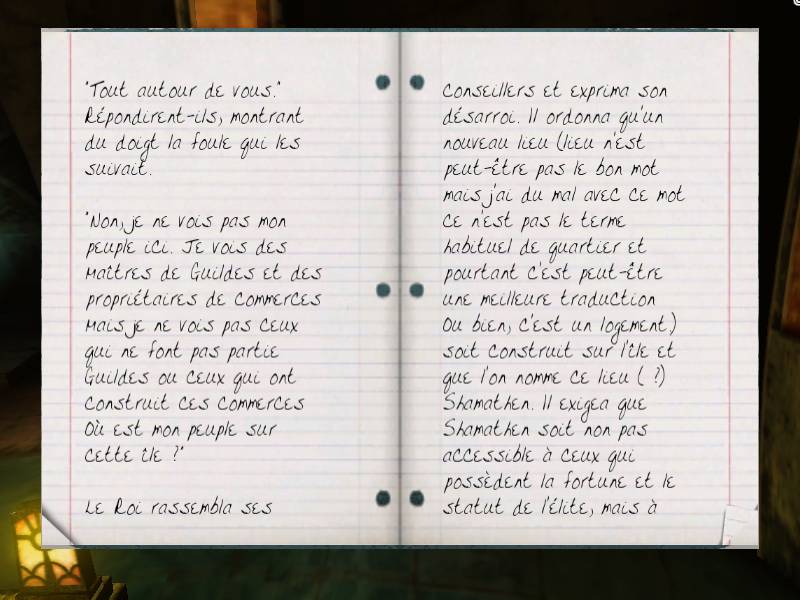 "Tout autour de vous."
Répondirent-ils, montrant
du doigt la foule qui les
suivait.
"Non, je ne vois pas mon
peuple ici. Je vois des
Maîtres de Guildes et des
propriétaires de commerces
Mais je ne vois pas ceux
qui ne font pas partie
Guildes ou ceux qui ont
construit ces commerces
Où est mon peuple sur
cette île ?"
Le Roi rassembla ses
Conseillers et exprima son
désarroi. Il ordonna qu'un
nouveau lieu (lieu n'est
peut-être pas le bon mot
mais j'ai du mal avec ce mot
Ce n'est pas le terme
habituel de quartier et
pourtant c'est peut-être
une meilleure traduction
Ou bien, c'est un logement)
soit construit sur l'île et
que l'on nomme ce lieu ( ?)
Shamathen. Il exigea que
Shamathen soit non pas
accessible à ceux qui
possèdent la fortune et le
statut de l'élite, mais à